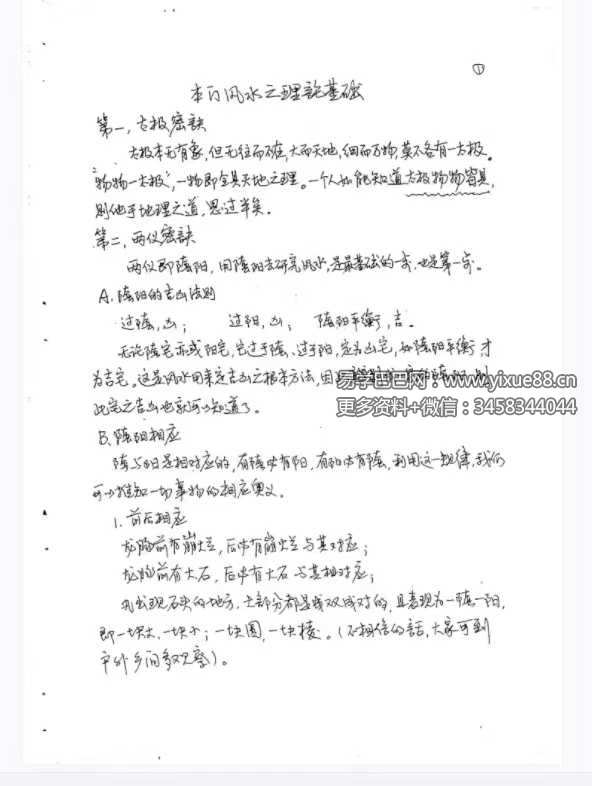 ①
本门风水之理論基础
第一，太极密訣
太极本无有象，但无往而不在，大而天地，细而万物，莫不各有一太极。
"物物一太极"，一物即全具天地之理。一个人如能知道太极物物皆具，
则他于地理之道，思过半矣。
第二，两仪密訣
两仪即陰阳，用陰阳去研究风水，是最基础的一步，也是第一步。
A.陰阳的吉凶法则
过陰，凶； 过阳，凶； 陰阳平衡，吉。
无论陰宅亦或阳宅，它过于陰、过于阳，定为凶宅，如陰阳平衡才
为吉宅。这是风水用来定吉凶之根本方法，因此 陰阳，则
易学巴巴网：www.yixue88.cn
此宅之吉凶也就可以知道了。
更多资料+微信：3458344044
B.陰阳相应
陰与阳是相对应的，有陰必有阳，有阳必有陰，利用这一规律，我们
可以推知一切事物的相应奥义。
1.前后相应
龙脉前有崩烂，后必有崩烂与其对应；
龙脉前有大石，后必有大石与其相对应；
凡发现石头的地方，大部分都是成双成对的，且表现为一陰一阳，
即一块大、一块小；一块圆，一块棱。（不相信的話，大家可到
户外乡间多观察）。